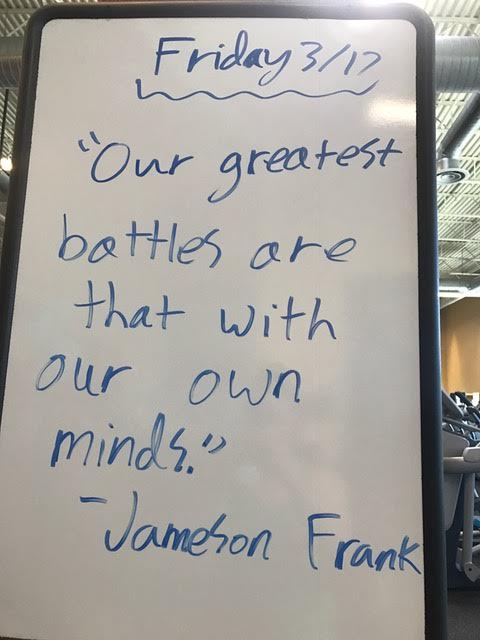 Friday 3/17
"Our greatest
battles are
that with
our own
minds."
- Jameson Frank